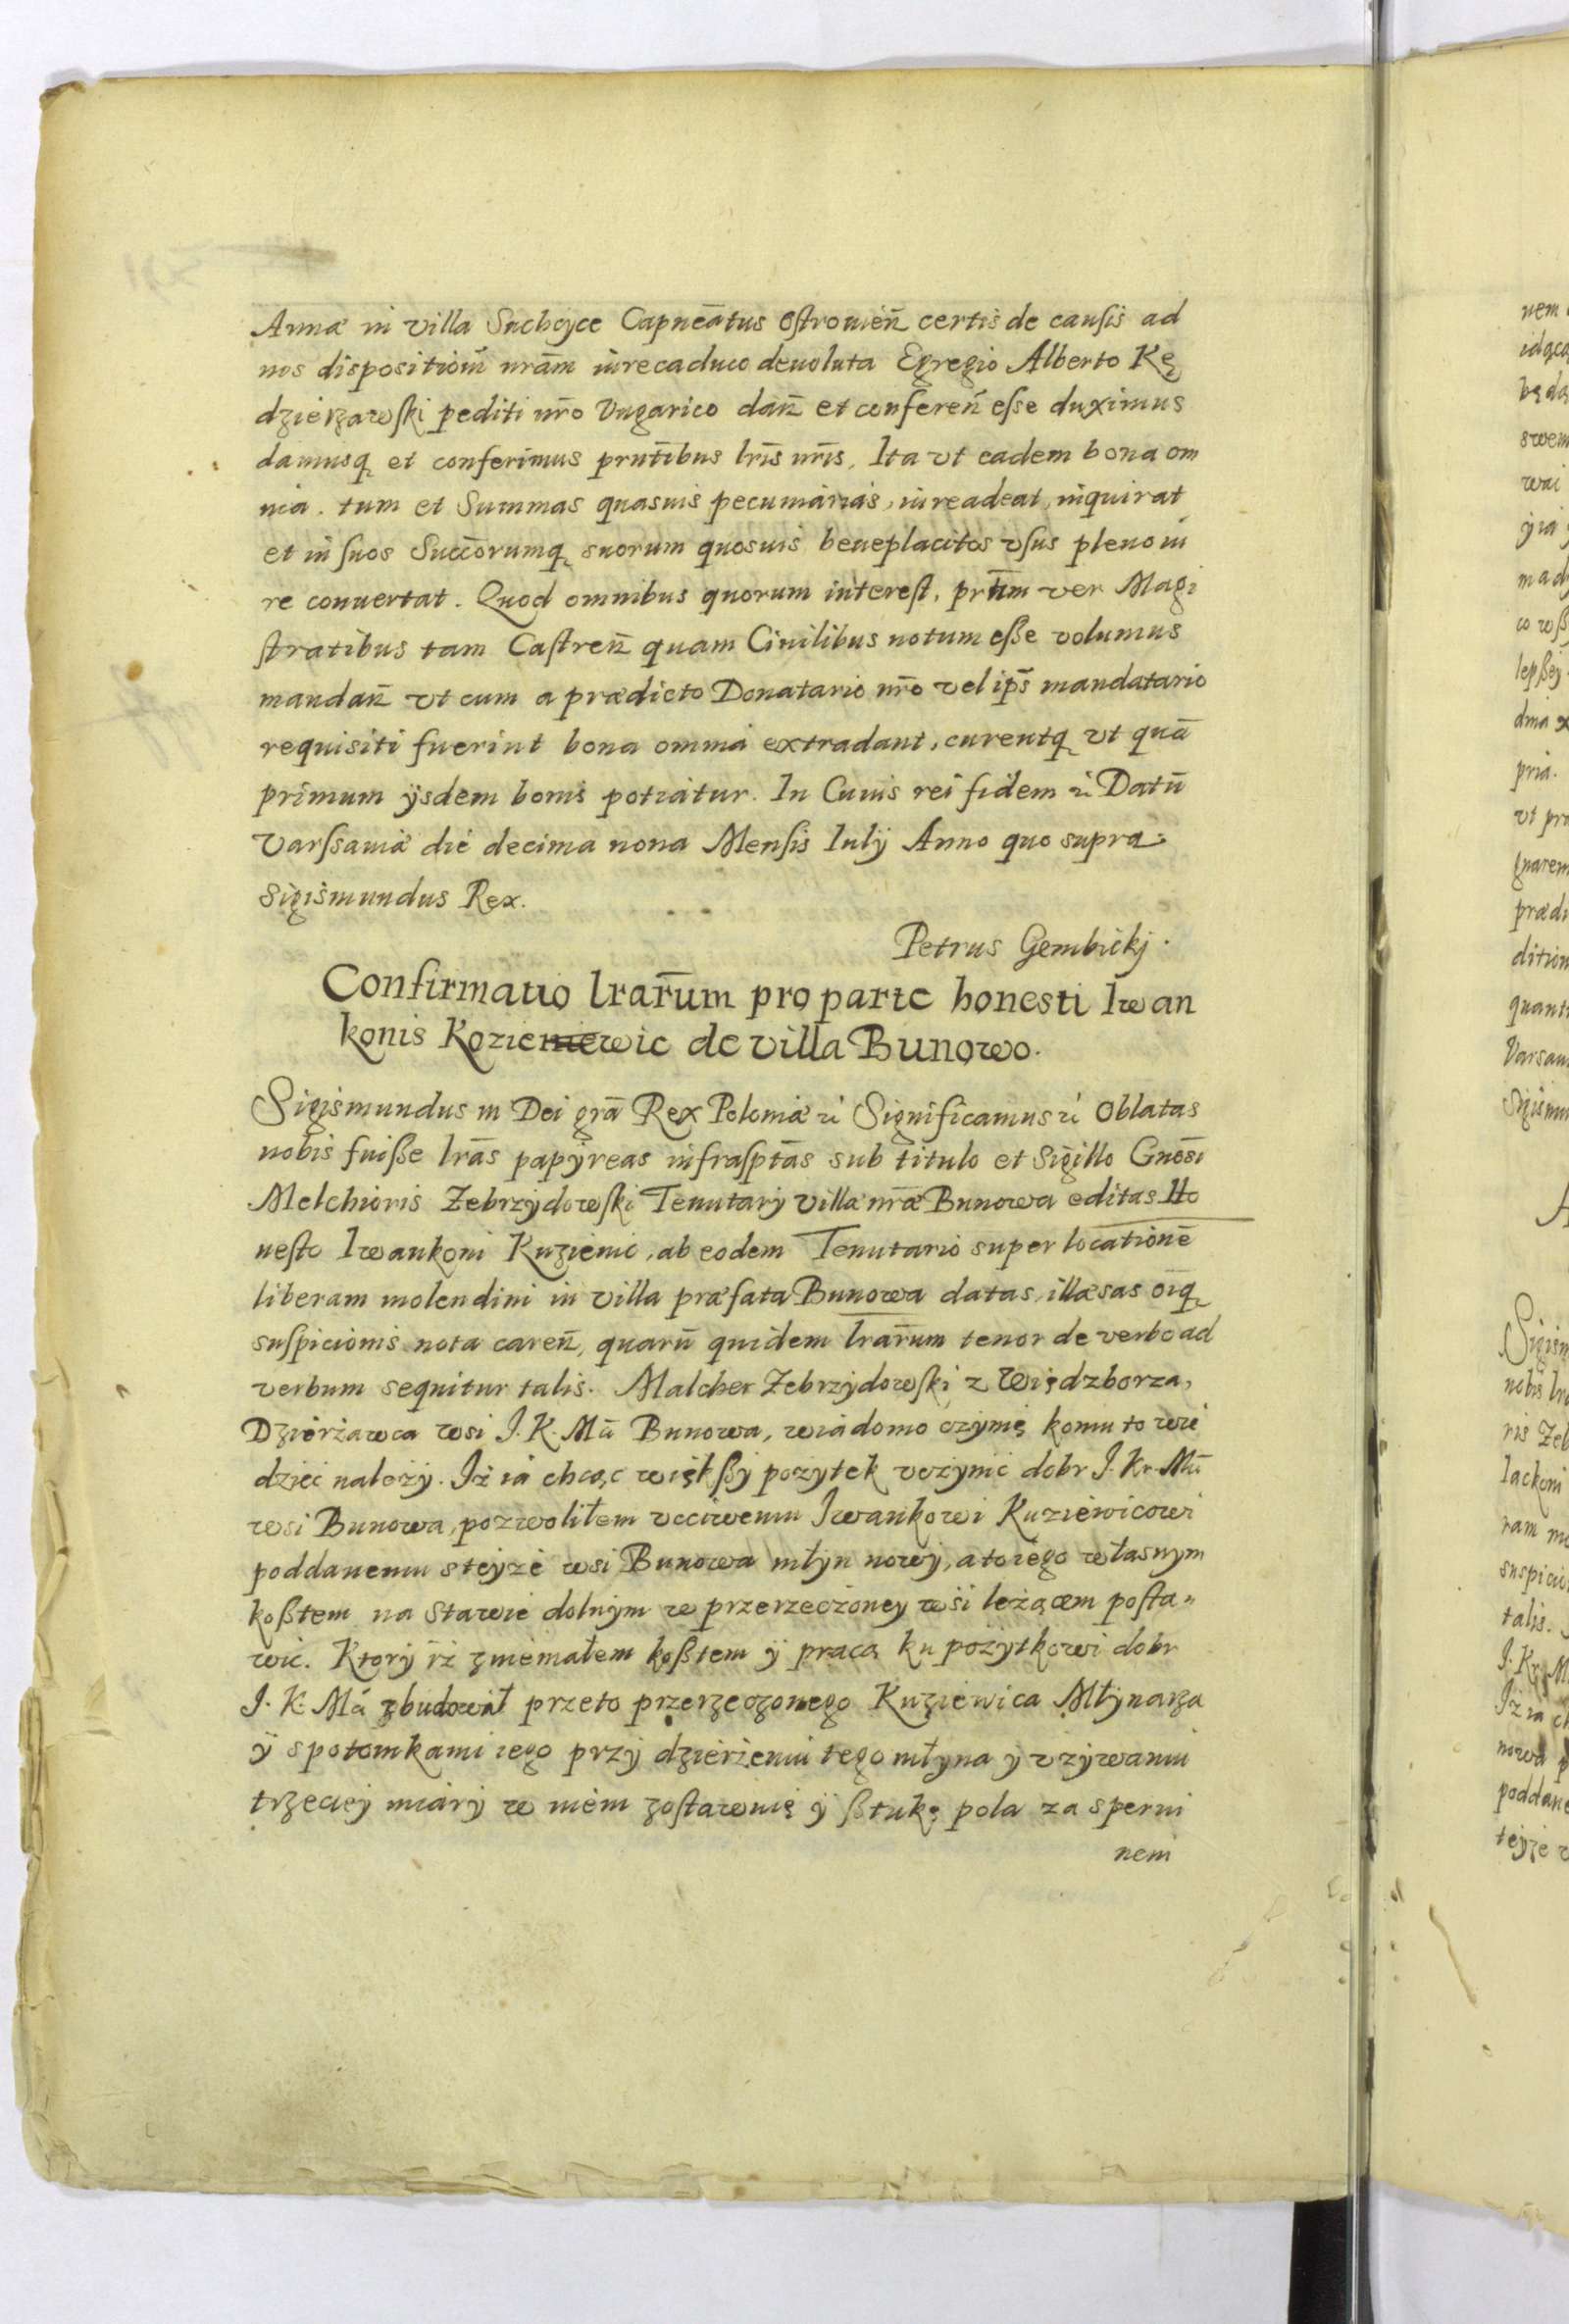 Annæ in villa Suchcyce Capneātus Ostrowień certis de causis ad
nos dispositioni nrām iure caduco deuoluta Egregio Alberto Kę
dzierzawski pediti nr̄o Vngarico dan̄ et conferen̄ esse duximus
damusq et conferimus prntibus lris nris, Ita vt eadem bona om
nia. tum et Summas quasuis pecuniarias, iureadeat, inquirat
et in suos Succōrumq suorum quosuis beneplacitos vsus pleno iu
re conuertat. Quod omnibus quorum interest, prt̄im ver Magi
stratibus tam Castren̄ quam Ciuilibus notum esse volumus
mandan̄ vt cum a prædicto Donatario nr̄o vel ip̄s mandatario
requisiti fuerint bona omnia extradant, curentq vt quā
primum ijsdem bonis potiatur. In Cuius rei fidem ꝛc Datū
Varssauiæ die decima nona Mensis Iulij Anno quo supra.
Sigismundus Rex.
Petrus Gembickj.
Confirmatio lrar̄um pro parte honesti Iwan
konis Kozieniewic de villa Bunowo.
Sigismundus III Dei grā Rex Poloniæ ꝛc Significamus ꝛc Oblatas
nobis fuisse lrās papyreas infrasptās sub titulo et Sigillo Gnōsi
Melchioris Zebrzydowski Tenutarij villæ nrǣ Bunowa editas Ho
nesto Iwankoni Kuzienic, ab eodem Tenutario super locationē
liberam molendini in villa præfata Bunowa datas, illæsas oīq
suspicionis nota caren̄, quarū quidem lrar̄um tenor de verbo ad
verbum sequitur talis. Malcher Zebrzydowski z Więdzborza,
Dzierżawca wsi J. K. Mći Bunowa, wiadomo czynię komu to wie
dzieć należy. Iż ia chcąc więkßy pozytek vczynić dobr J. Kr. Mći
wsi Bunowa, pozwoliłem vcciwemu Iwankowi Kuziewicowi
poddanemu steyze wsi Bunowa młyn nowy, a to iego własnym
koßtem na stawie dolnym w przerzeczoney wsi leżącem posta„
wić. Ktory iż zniemałem koßtem ÿ pracą ku pożytkowi dobr
J. K. Mći zbudował przeto przerzeczonego Kuziewica Młynarza
ÿ spotomkami iego przÿ dzierżeniu tego młyna y vżywaniu
trzeciey miary w niem zostawuię ÿ ßtukę pola za sperni
nem